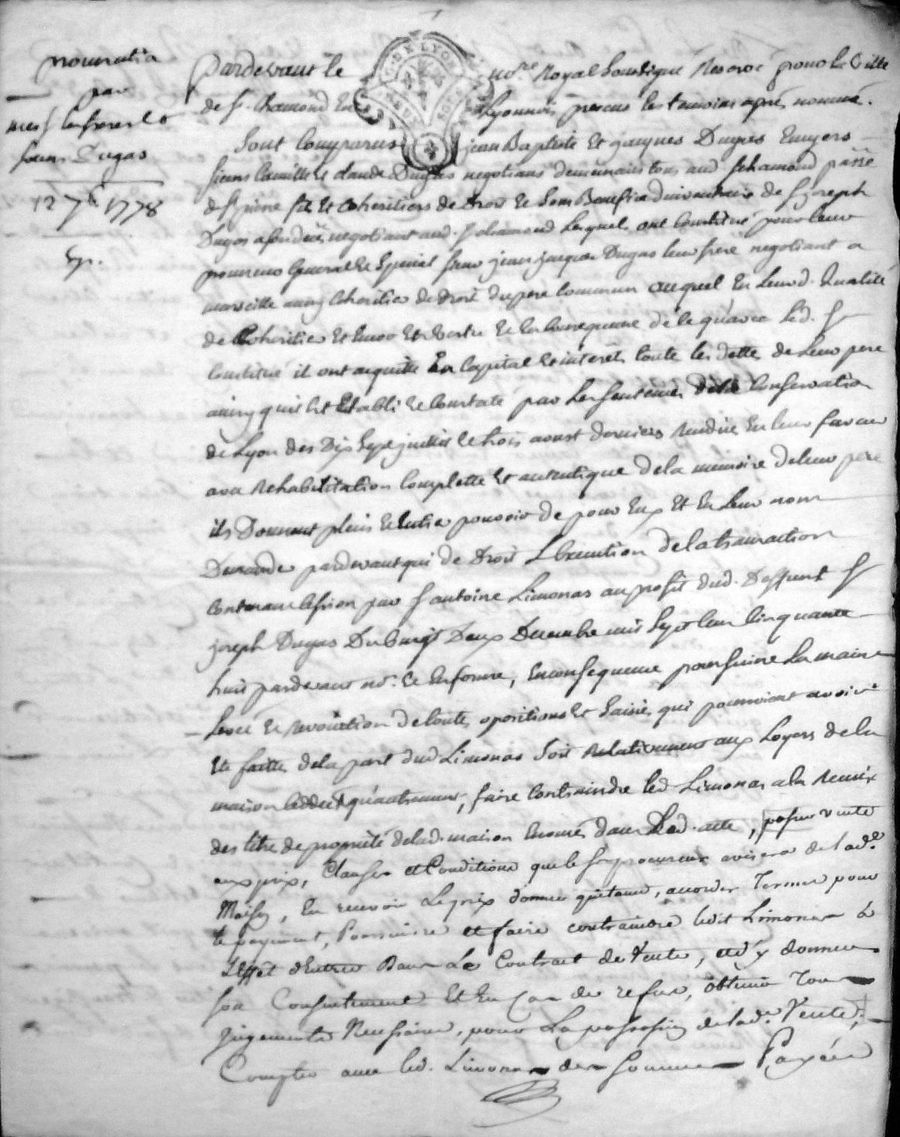 procuration
par
mess les freres et
sieurs Dugas
12 7bre 1778
Exp.
Pardevant le no.re Royal soussigné Reservé pour la Ville
de St. Chamond en Lyonnois presens les temoins après nommés.
sont Comparus jean Baptiste et jacques Dugas Ecuyers
sieurs Camille et claude Dugas negotians demeurais tous aud St chamond paroisse
de St pierre fils et Coheritiers de Droit et sous Benefice d'inventaire de Sr joseph
Dugas a son deces negotiant aud. St chamond Lesquels ont Constitué pour leur
procureur General et Special sieur jean jacques Dugas leur frere negotiant a
marseille aussy Coheritier de Droit du pere Commun auquel En leurd. Qualité
de Coheritier et Encore En Vertu et En Consequence de ce qu'avec led. Sr
Constitué il ont acquitté En Capital et interets toute les dette de Leur pere
ainsy quil Est Etabli et Constaté par Les sentences de la Conservation
de Lyon des Dix Sept juillet et trois aoust derniers Rendue En leur faveur
avec Rehabilitation Complette Et autentique de la memoire de leur pere
ils Donnent plein et Entier pouvoir de pour Eux Et En Leur nom
Demander pardevant qui de Droit L'Execution de la transaction
Contenant Cession par Sr antoine Limonas au profit dud. Deffunt Sr
joseph Dugas Du Vingt Deux Decembre mil Sept Cent Cinquante
huit pardevant no.re Ce Enforme, En consequence poursuivre La maine
Levée et revocation de toutes opositions et Saisies qui pourroient avoir
Eté faittes de la part dud Limonas Soit Relativement aux Loyers de la
maison Cedée qu'autrement, faire Contraindre led Limonas a la Remise
des titre de proprieté de lad. maison Enoncés dans Lad. acte, passer vente
aux prix, Clauses et Conditions que le Sr procureur avisera de lad.e
Maison, En recevoir Le prix donner quittance, accorder Termes pour
le payement, Poursuivre et faire contraindre ledit Limonas à
L'effet d'Entrer Dans Le Contract de Vente, et d'y donner
son Consentement Et En Cas de refus, obtenir Tous
jugements Necessaires, pour La passation de lad.e Vente,
Compter avec led. Limonas des sommes Payées